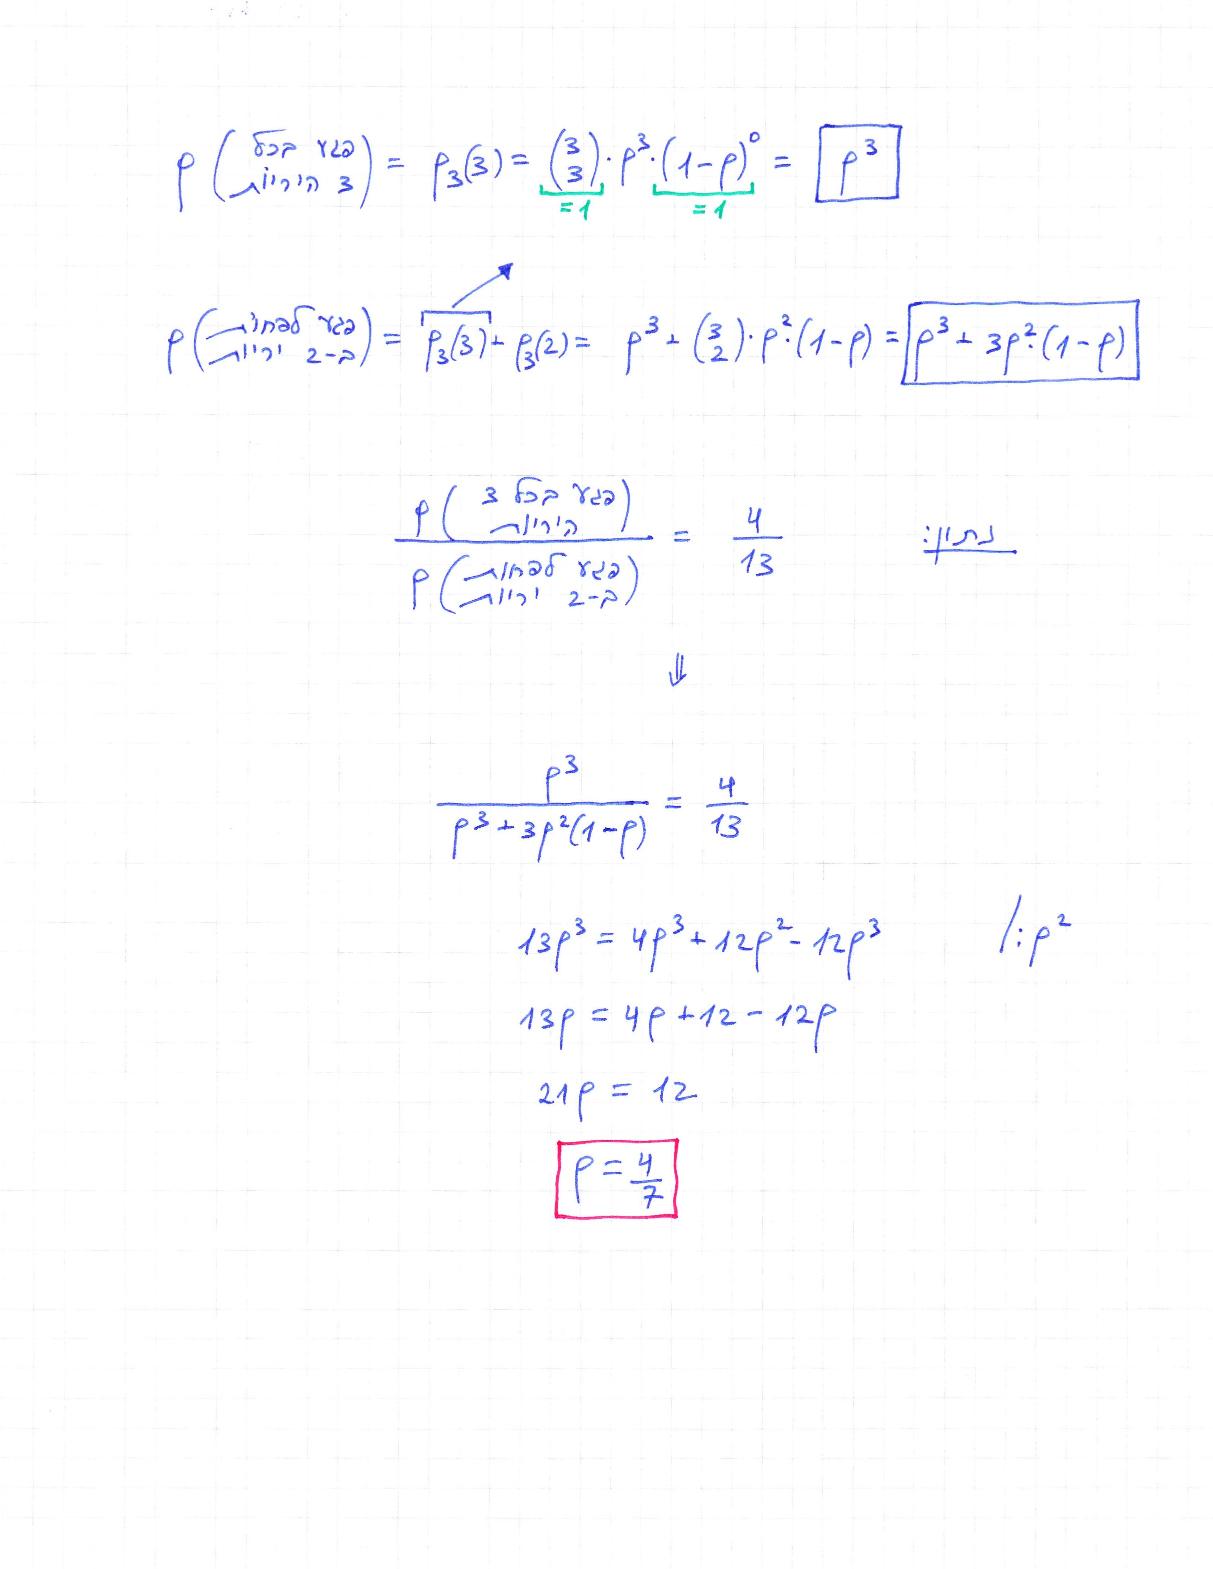 P(פגע בכל 3 היריות) = P₃(3) = (3 3)·P³·(1-P)⁰ = P³
=1 =1
P(פגע לפחות ב-2 יריות) = P₃(3) + P₃(2) = P³ + (3 2)·P²·(1-P) = P³ + 3P²·(1-P)
נתון: P(פגע בכל 3 היריות) / P(פגע לפחות ב-2 יריות) = 4/13
⇓
P³ / P³+3P²(1-P) = 4/13
13P³ = 4P³ + 12P² - 12P³ /:P²
13P = 4P + 12 - 12P
21P = 12
P = 4/7